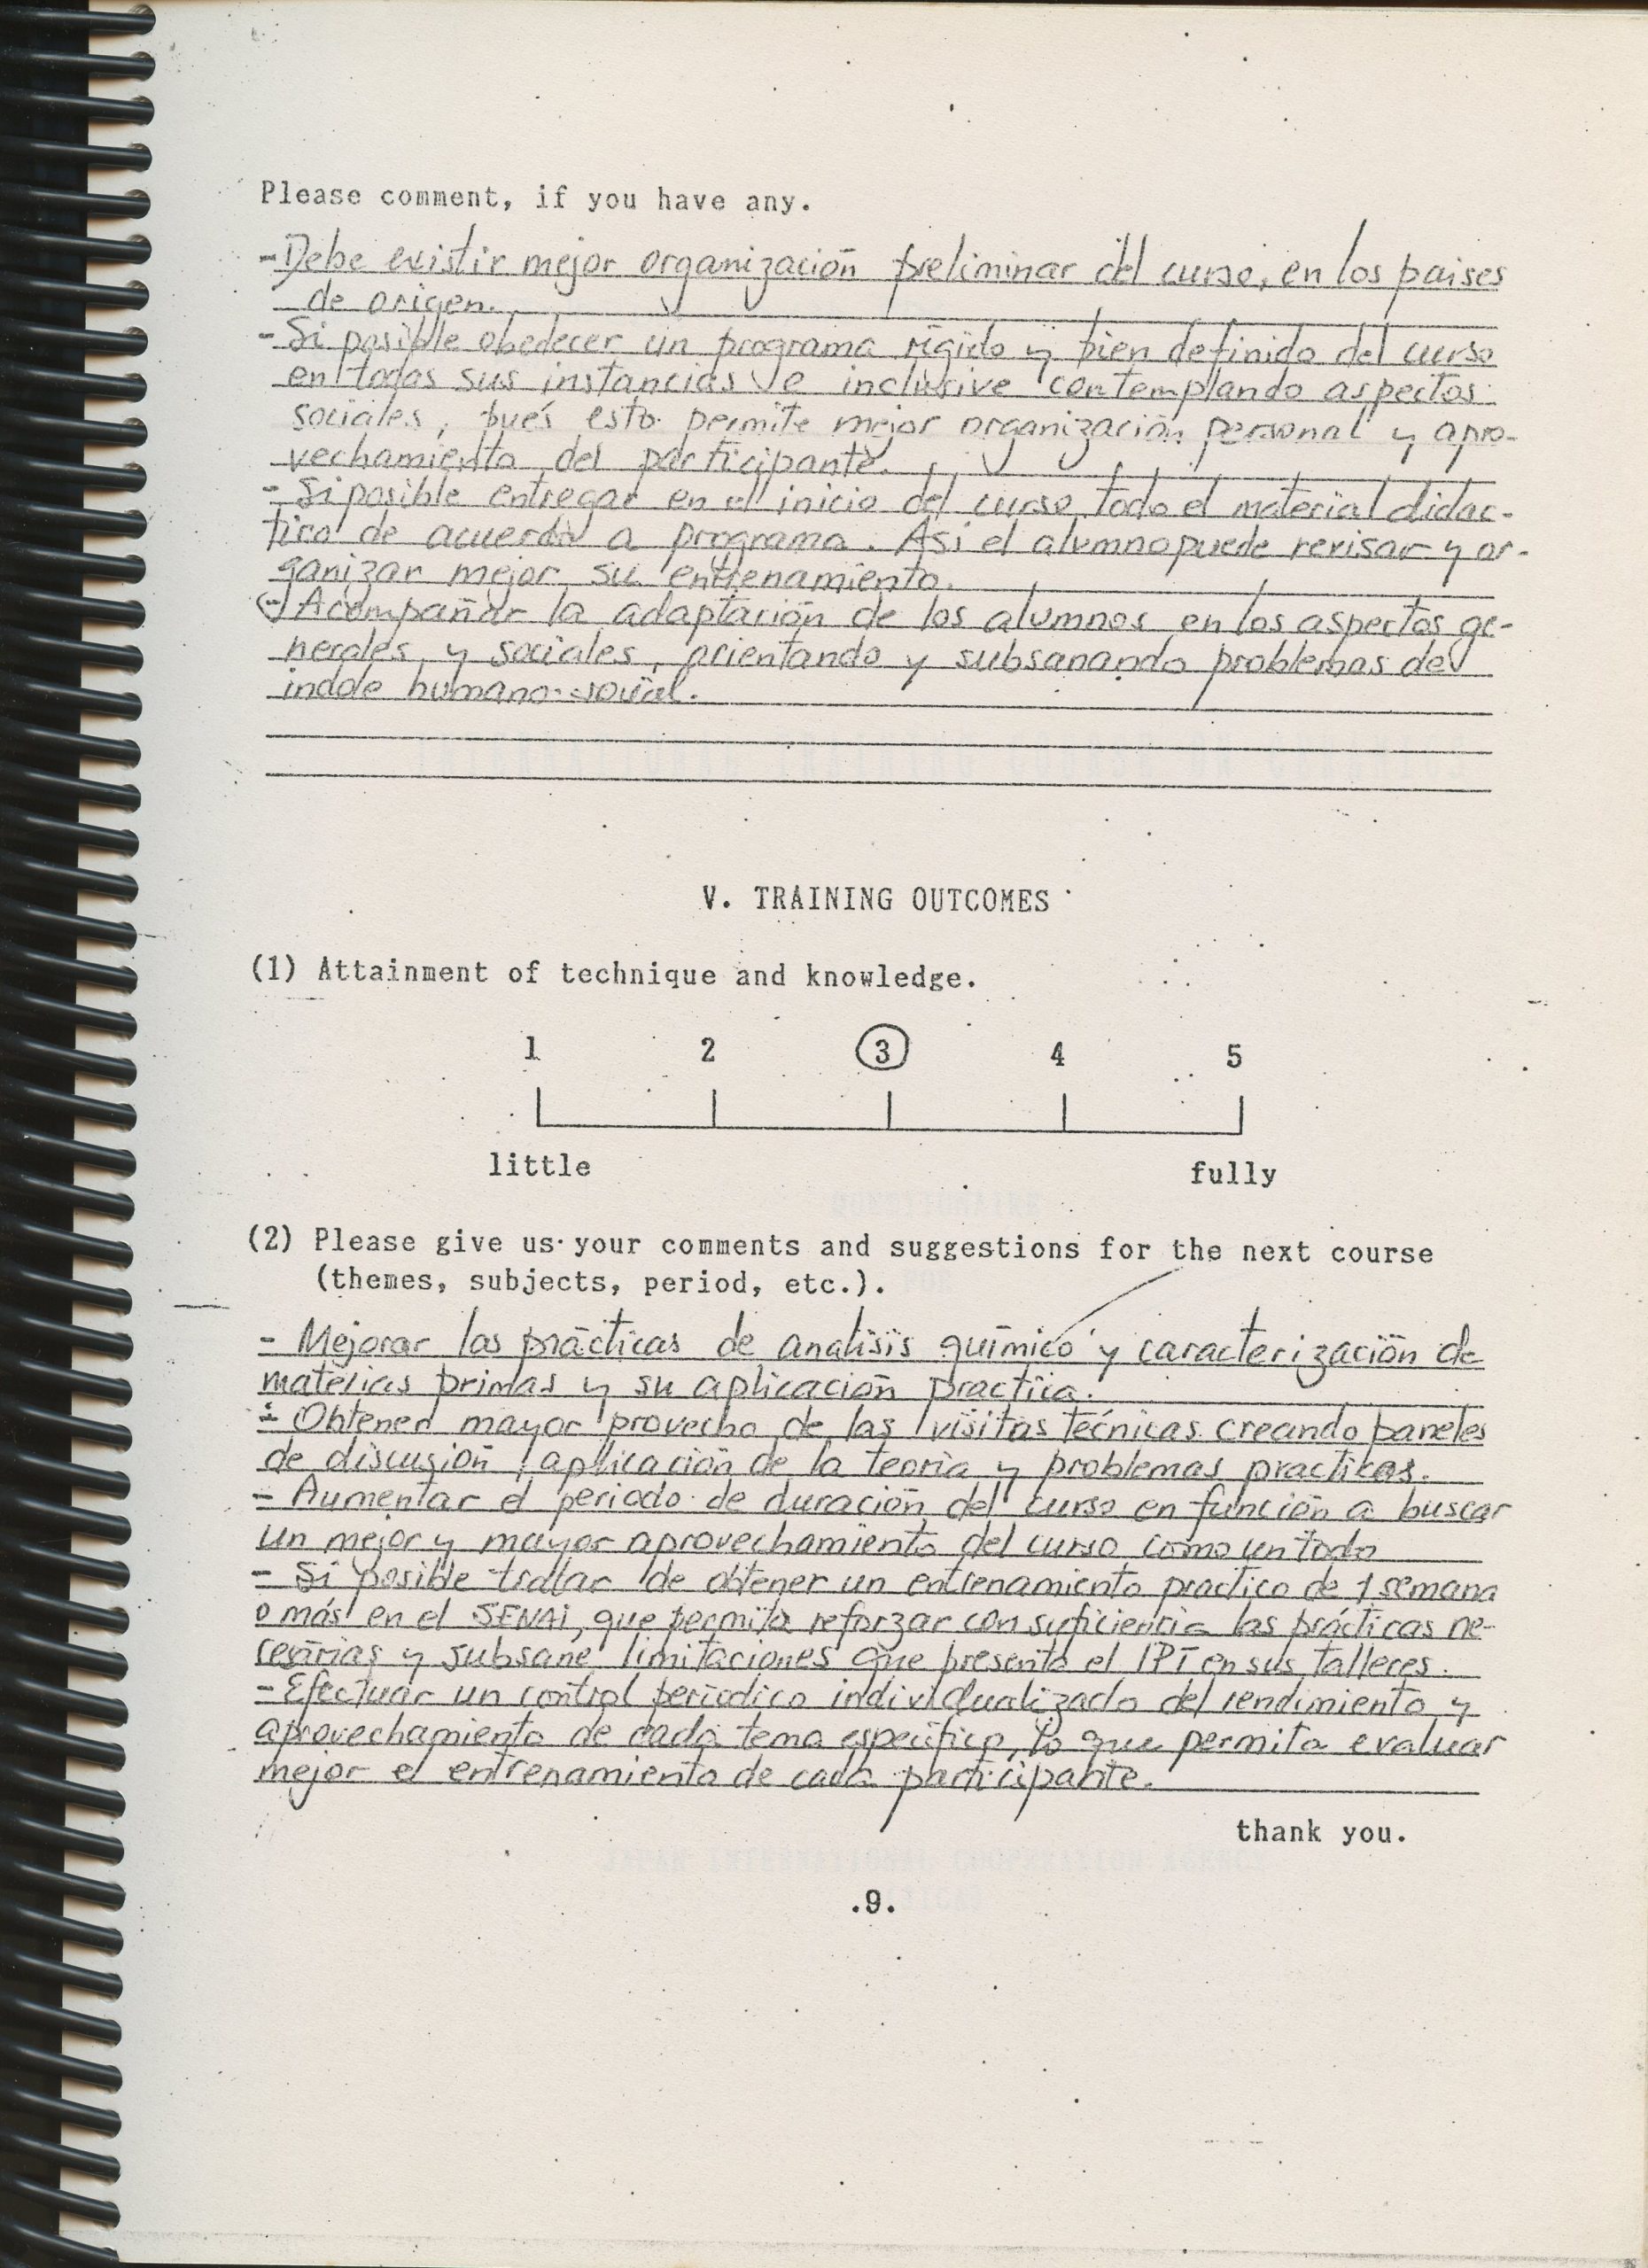 Please comment, if you have any.
- Debe existir mejor organización preliminar del curso, en los paises
de origen.
- Si posible obedecer un programa rígido y bien definido del curso
en todas sus instancias e inclusive contemplando aspectos
sociales, pués esto permite mejor organización personal y apro-
vechamiento del participante.
- Si posible entregar en el inicio del curso todo el material didac-
tico de acuerdo a programa. Así el alumno puede revisar y or-
ganizar mejor su entrenamiento.
- Acompañar la adaptación de los alumnos en los aspectos ge-
nerales y sociales, orientando y subsanando problemas de
indole humano-social.
V. TRAINING OUTCOMES
(1) Attainment of technique and knowledge.
1 2 3 4 5
little fully
(2) Please give us your comments and suggestions for the next course
(themes, subjects, period, etc.).
- Mejorar las prácticas de analisis químico y caracterización de
materias primas y su aplicación practica.
- Obtener mayor provecho de las visitas técnicas creando paneles
de discusión, aplicación de la teoria y problemas practicos.
- Aumentar el periodo de duración del curso en función a buscar
un mejor y mayor aprovechamiento del curso como un todo
- Si posible tratar de obtener un entrenamiento practico de 1 semana
o más en el SENAI, que permita reforzar con suficiencia las prácticas ne-
cesarias y subsane limitaciones que presenta el IPT en sus talleres.
- Efectuar un control periodico individualizado del rendimiento y
aprovechamiento de cada tema especifico, lo que permita evaluar
mejor el entrenamiento de cada participante.
thank you.
.9.